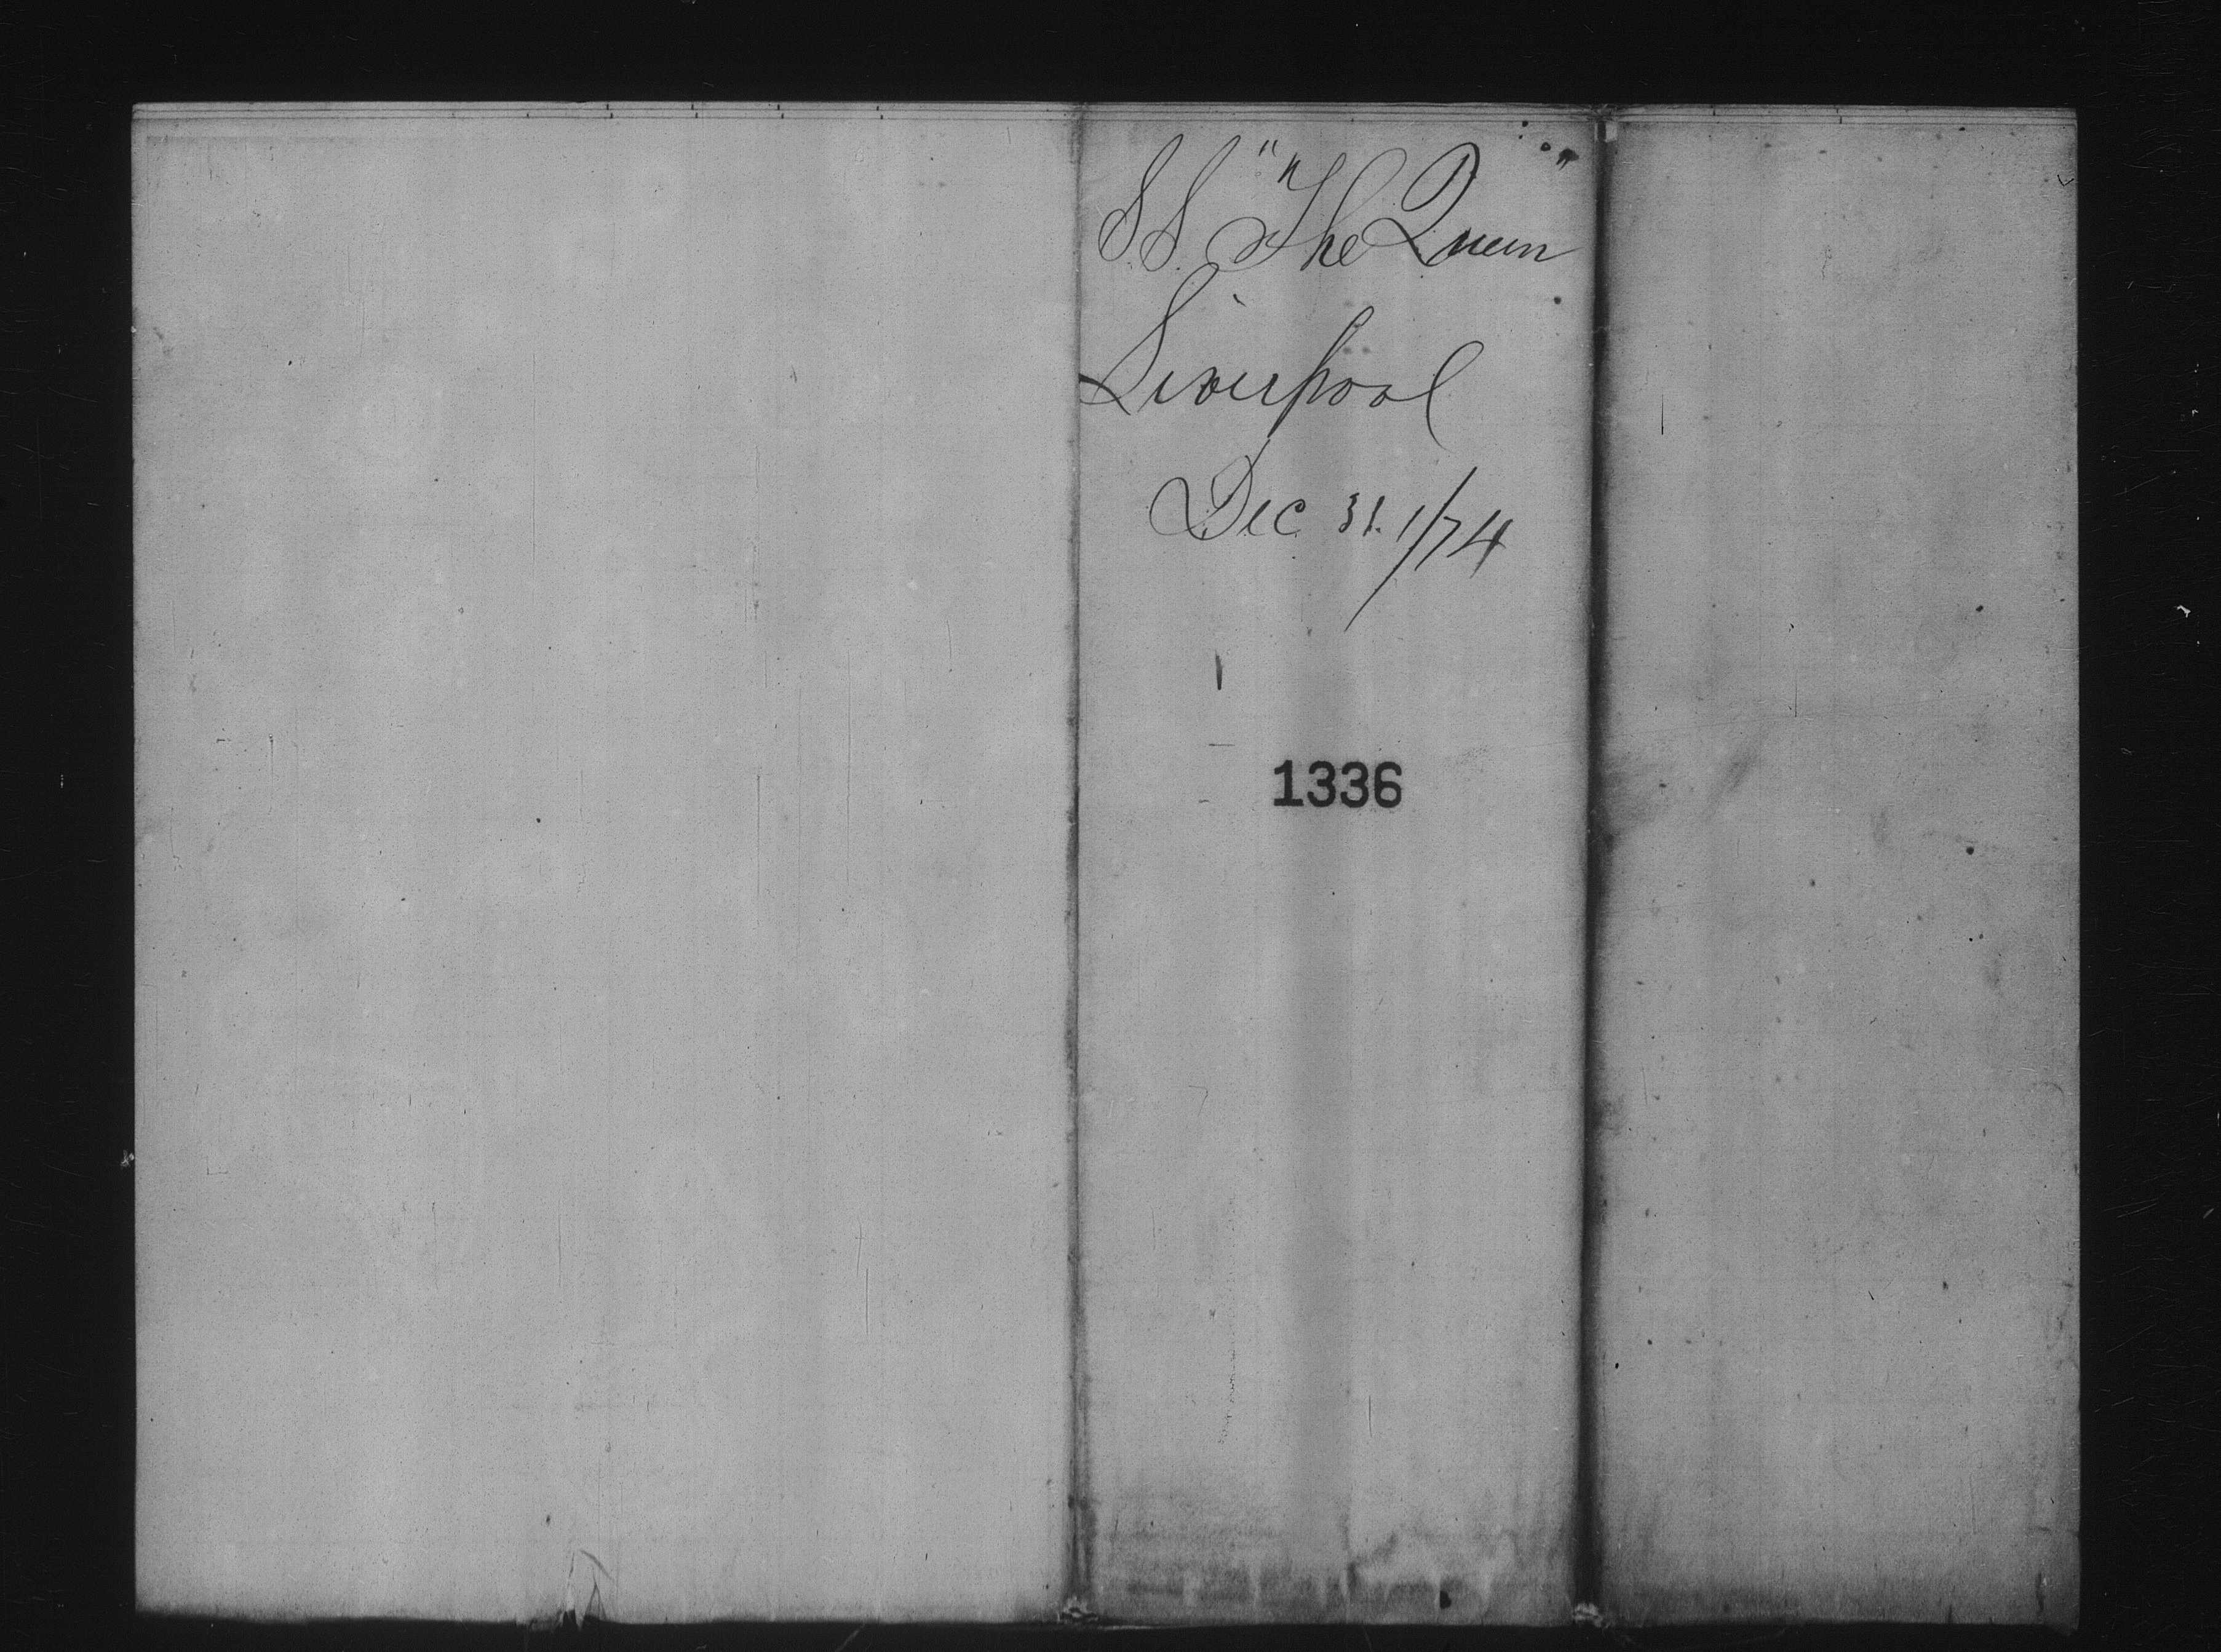 SS "The Queen"
Liverpool
Dec 31. 1/74
1336